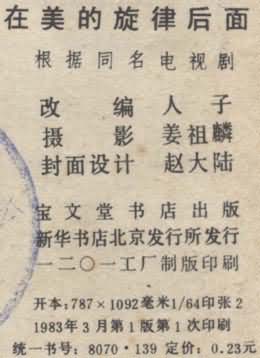 在美的旋律后面
根据同名电视剧
改编 人子
摄影 姜祖麟
封面设计 赵大陆
宝文堂书店出版
新华书店北京发行所发行
一二〇一工厂制版印刷
开本:787×1092毫米1/64印张2
1983年3月第1版第1次印刷
统一书号:8070·139 定价:0.23元